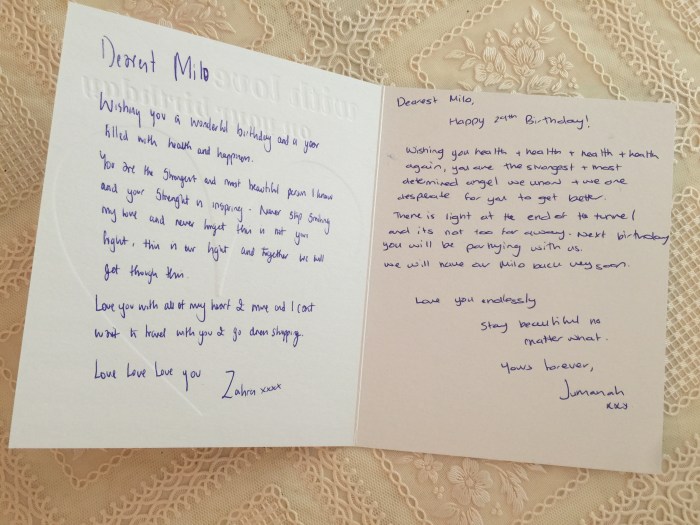 Dearest Milo
Wishing you a wonderful birthday and a year
filled with health and happiness.
You are the strongest and most beautiful person I know
and your strenght is inspiring - Never stop smiling
my love and never forget this is not your
fight, this is our fight and together we will
get through this.
Love you with all of my heart & more and I cant
wait to travel with you & go dress shopping.
Love Love Love you
Zahra xxxx
with love
on your birthday
Dearest Milo,
Happy 29th Birthday!
Wishing you health + health + health + health
again, you are the strongest + most
determined angel we know + we are
desperate for you to get better.
There is light at the end of the tunnel
and its not too far away. Next birthday
you will be partying with us.
we will have our Milo back very soon.
Love you endlessly
Stay beautiful no
matter what.
Yours forever,
Jumanah